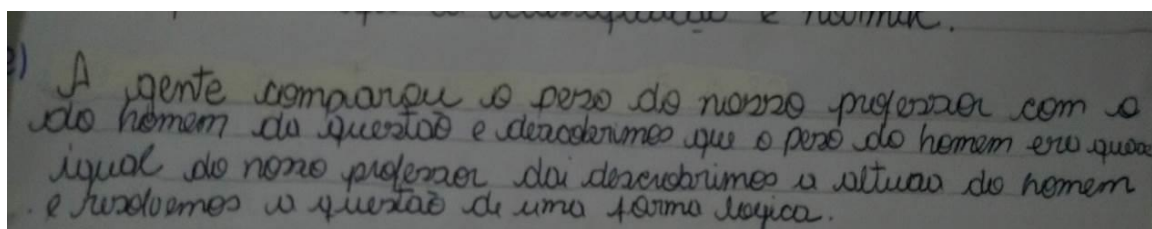 e)
A gente comparou o peso do nosso professor com o
do homem da questão e descobrimos que o peso do homem era quase
igual do nosso professor daí descrobrimos a altura do homem
e resolvemos a questão de uma forma logica.